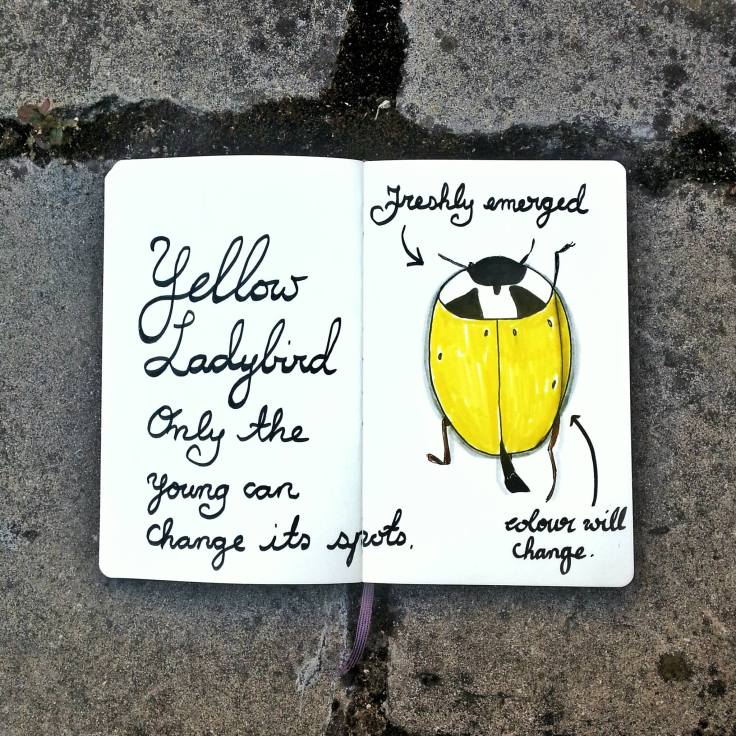 Yellow
Ladybird
Only the
young can
change its spots.
Freshly emerged
colour will
change.